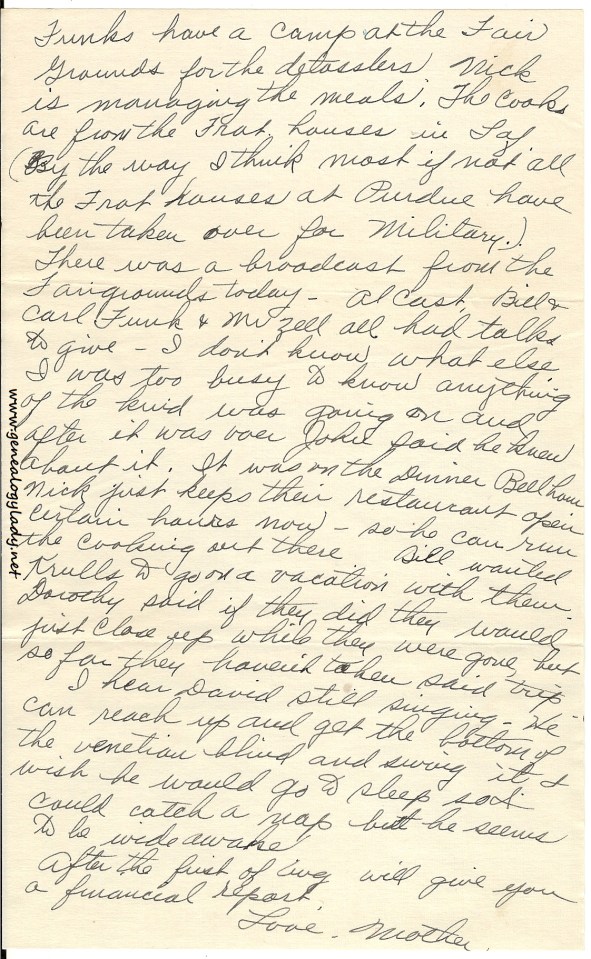 Funks have a camp at the Fair
Grounds for the detasslers Nick
is managing the meals. The cooks
are from the Frat. houses in Laf
(By the way I think most if not all
the Frat houses at Purdue have
been taken over for Military.)
There was a broadcast from the
Fairgrounds today - Al Cast, Bill &
Carl Funk & Mr Zell all had talks
to give - I don't know what else
I was too busy to know anything
of the kind was going on and
after it was over John said he knew
about it. It was on the Dinner Bell hour
Nick just keeps their restaurant open
certain hours now - so he can run
the cooking out there Bill wanted
Krulls to go on a vacation with them.
Dorothy said if they did they would
just close up while they were gone, but
so far they haven't taken said trip -
I hear David still singing - He
can reach up and get the bottom of
the venetian blind and swing it &
wish he would go to sleep so I
could catch a nap but he seems
to be wide awake
After the first of Aug will give you
a financial report.
Love - Mother.
www.genealogylady.net